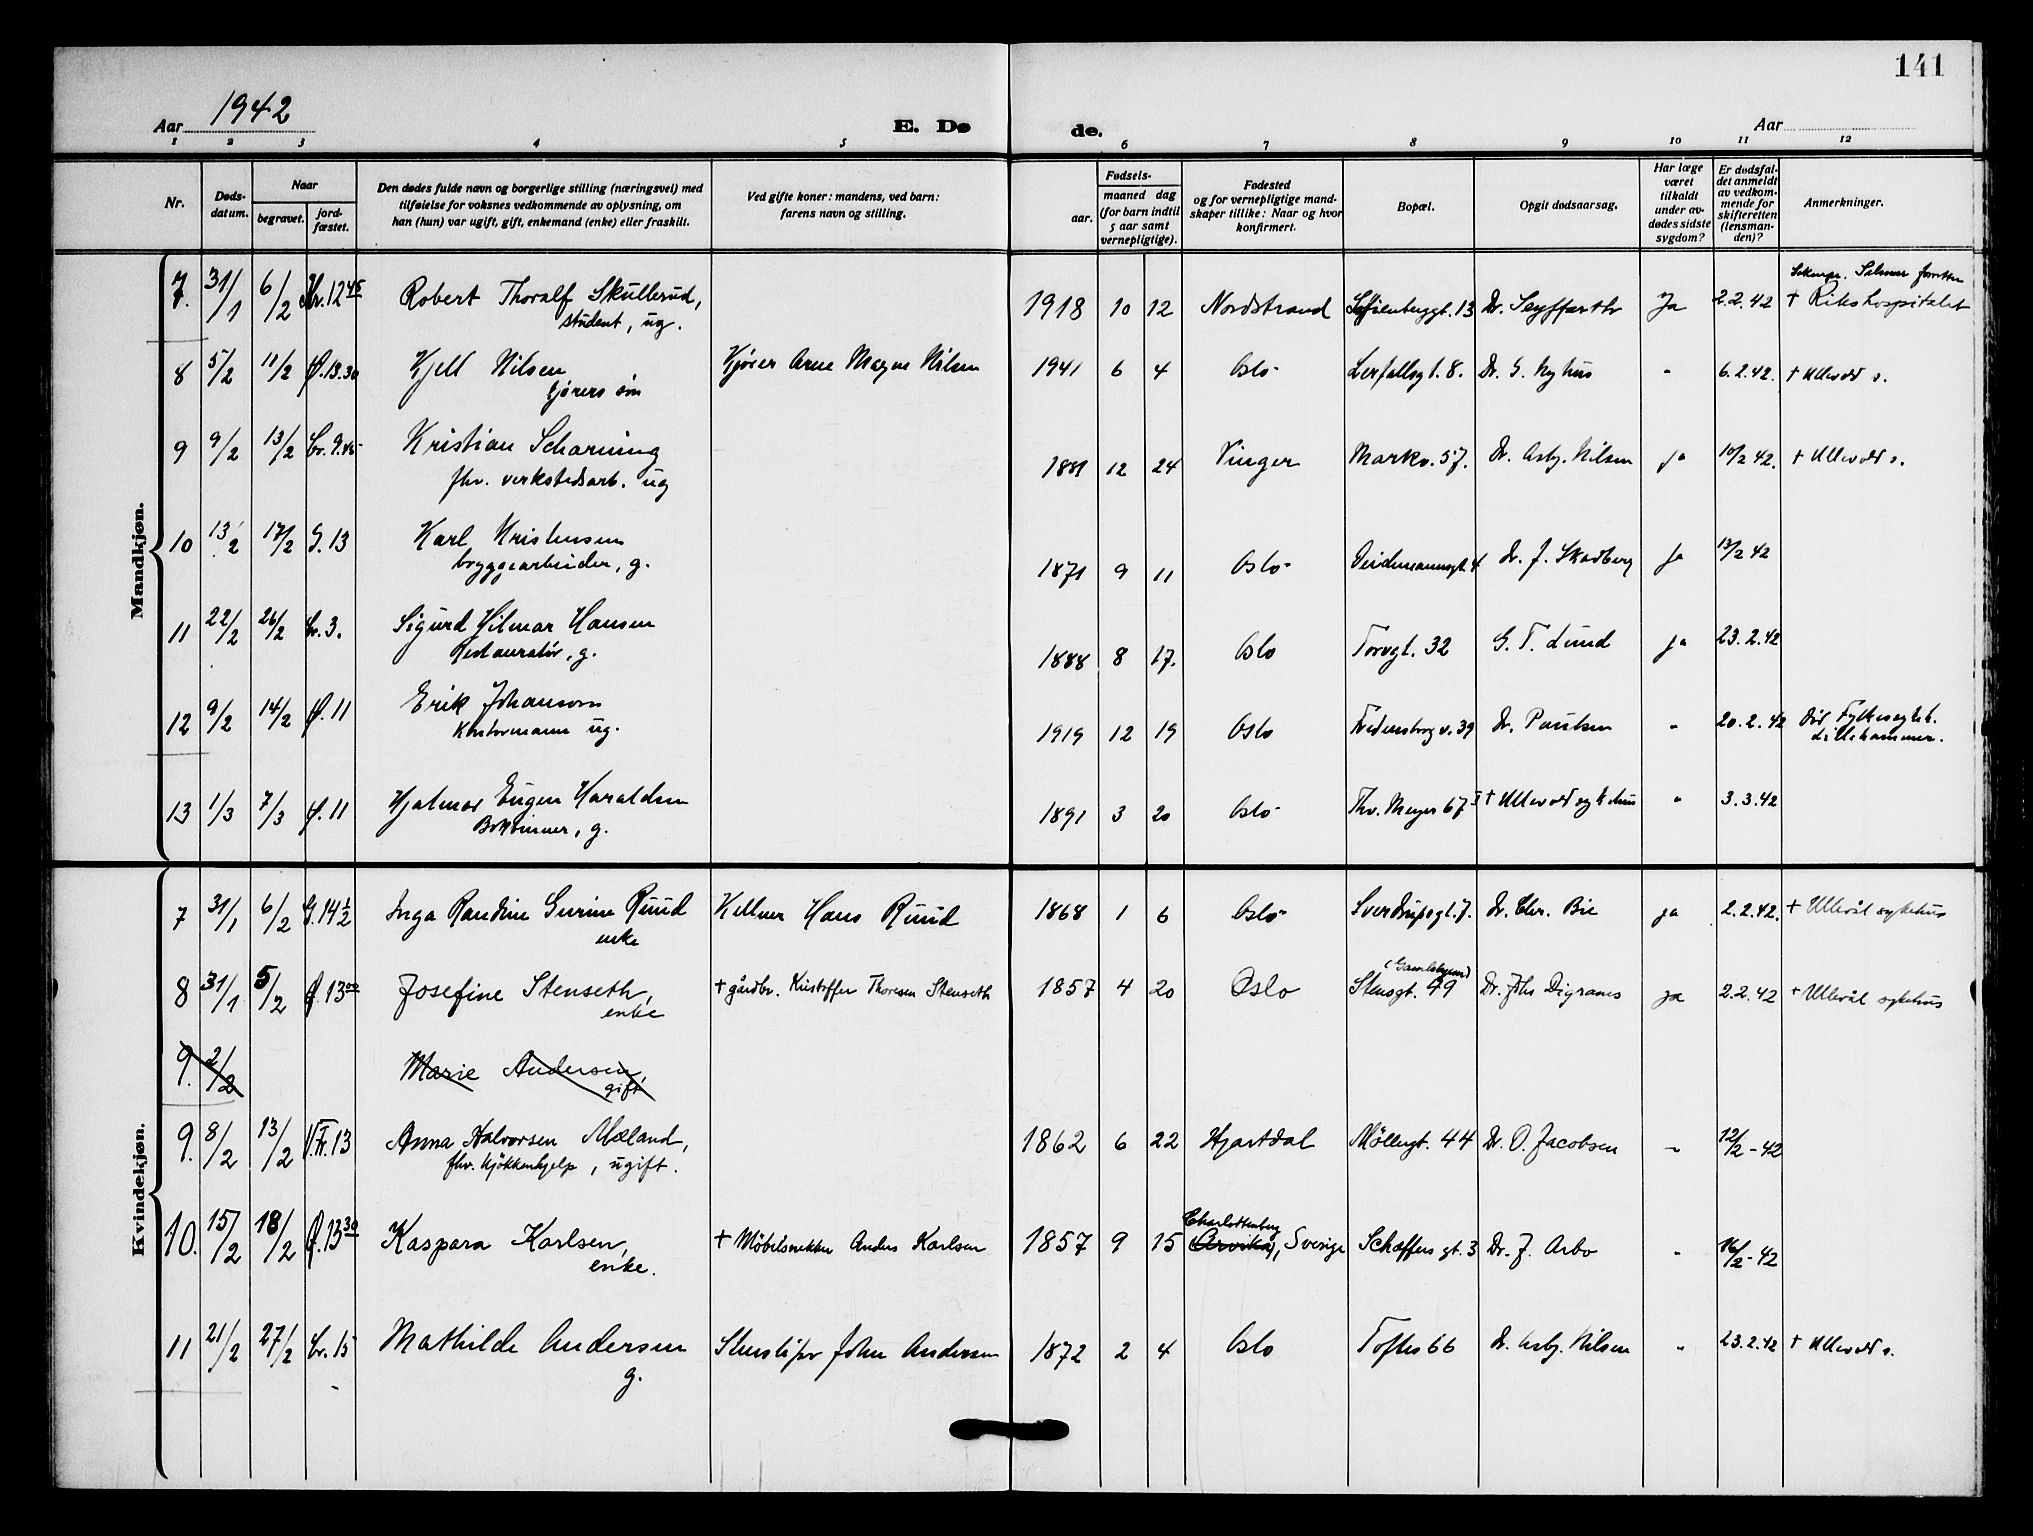 141
Aar 1942
E. Dø de.
Aar
1 2 3 4 5 6 7 8 9 10 11 12
Nr.
Døds-
datum.
Naar
begravet.
jord-
fæstet.
Den dødes fulde navn og borgerlige stilling (næringsvei) med
tilføielse for voksnes vedkommende av oplysning, om
han (hun) var ugift, gift, enkemand (enke) eller fraskilt.
Ved gifte koner: mandens, ved barn:
farens navn og stilling.
Fødsels-
aar.
maaned dag
(for barn indtil
5 aar samt
vernepligtige).
Fødested
og for vernepligtige mand-
skaper tillike: Naar og hvor
konfirmert.
Bopæl.
Opgit dødsaarsag.
Har læge
været
tilkaldt
under av-
dødes sidste
sygdom?
Er dødsfal-
det anmeldt
av vedkom-
mende for
skifteretten
(lensman-
den)?
Anmerkninger.
Mandkjøn.
7. 31/1 6/2 Kr. 12 45 Robert Thoralf Skullerud, 1918 10 12 Nordstrand Sofienberggt. 13 Dr. Seyffarth Ja 2.2.42 + Rikshospitalet
student, ug.
8 5/2 11/2 Ø. 13.30 Kjell Nilsen Kjører Arne Magne Nilsen 1941 6 4 Oslo Lerfallsgt. 8. Dr. G. Nyhus - 6.2.42. + Ullevold s.
kjørers søn
9 9/2 13/2 Cr. 9.45 Kristian Scharning 1881 12 24 Vinger Markv. 57. Dr. Asbj. Nilsen ja 10/2 42. + Ullevold s.
fhv. verkstedsarb. ug
10 13/2 17/2 G. 13 Karl Kristensen 1871 9 11 Oslo Deichmannsgt. 4 Dr. J. Skadberg Ja 13/2 42
bryggearbeider, g.
11 22/2 26/2 Cr. 3. Sigurd Hilmar Hansen 1888 8 17. Oslo Torvgt. 32 G. T. Lund ja 23.2.42
Restauratør, g.
12 9/2 14/2 Ø. 11 Erik Johanson 1919 12 19 Oslo Fredensborg v. 39 Dr. Paulsen " 20.2.42 død Fylkessykeh.
Kontormann ug. Lillehammer.
13 1/3 7/3 Ø. 11 Hjalmar Eugen Haraldsen 1891 3 20 Oslo Thv. Meyer 67 I + Ullevold sykehus " 3.3.42
g.
Kvindekjøn.
7 31/1 6/2 G. 14 1/2 Inga Randine Gurine Ruud Kellner Hans Ruud 1868 1 6 Oslo Sverdrupsgt. 7. Dr. Chr. Bie ja 2.2.42. + Ullevål sykehus
enke
(Gamlehjem)
8 31/1 5/2 Ø. 13 00 Josefine Stenseth, + gårdbr. Kristoffer Thoresen Stenseth 1857 4 20 Oslo Stensgt. 49 Dr. Johs Digranes ja 2.2.42 + Ullevål sykehus
enke
9. 2/2 Marie Andersen,
gift
9. 8/2 13/2 V.Fr. 13 Anna Halvorsen Mæland, 1862 6 22 Hjartdal Møllergt. 44 Dr. O. Jacobsen - 12/2-42
fhv. kjøkkenhjelp, ugift.
Charlottenberg
10. 15/2 18/2 Ø. 13 30 Kaspara Karlsen, + Møbelsnekker Anders Karlsen 1857 9 15 (Arvika), Sverige Schæffers gt. 3 Dr. J. Arbo " 16/2-42
enke.
11 21/2 27/2 Cr. 15 Mathilde Andersen Stensliper John Andersen 1872 2 4 Oslo Toftes 66 Dr. Asbj. Nilsen " 23.2.42 + Ullevold s.
g.